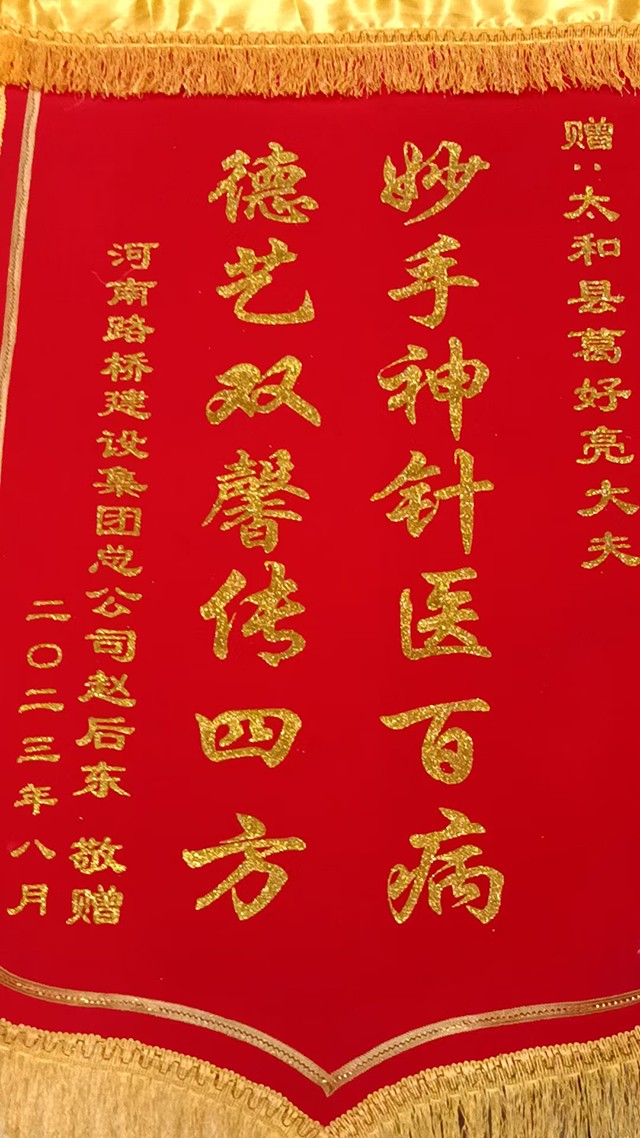 赠:太和县葛好亮大夫
妙手神针医百病
德艺双馨传四方
河南路桥建设集团总公司赵后东 敬赠
二〇二三年八月